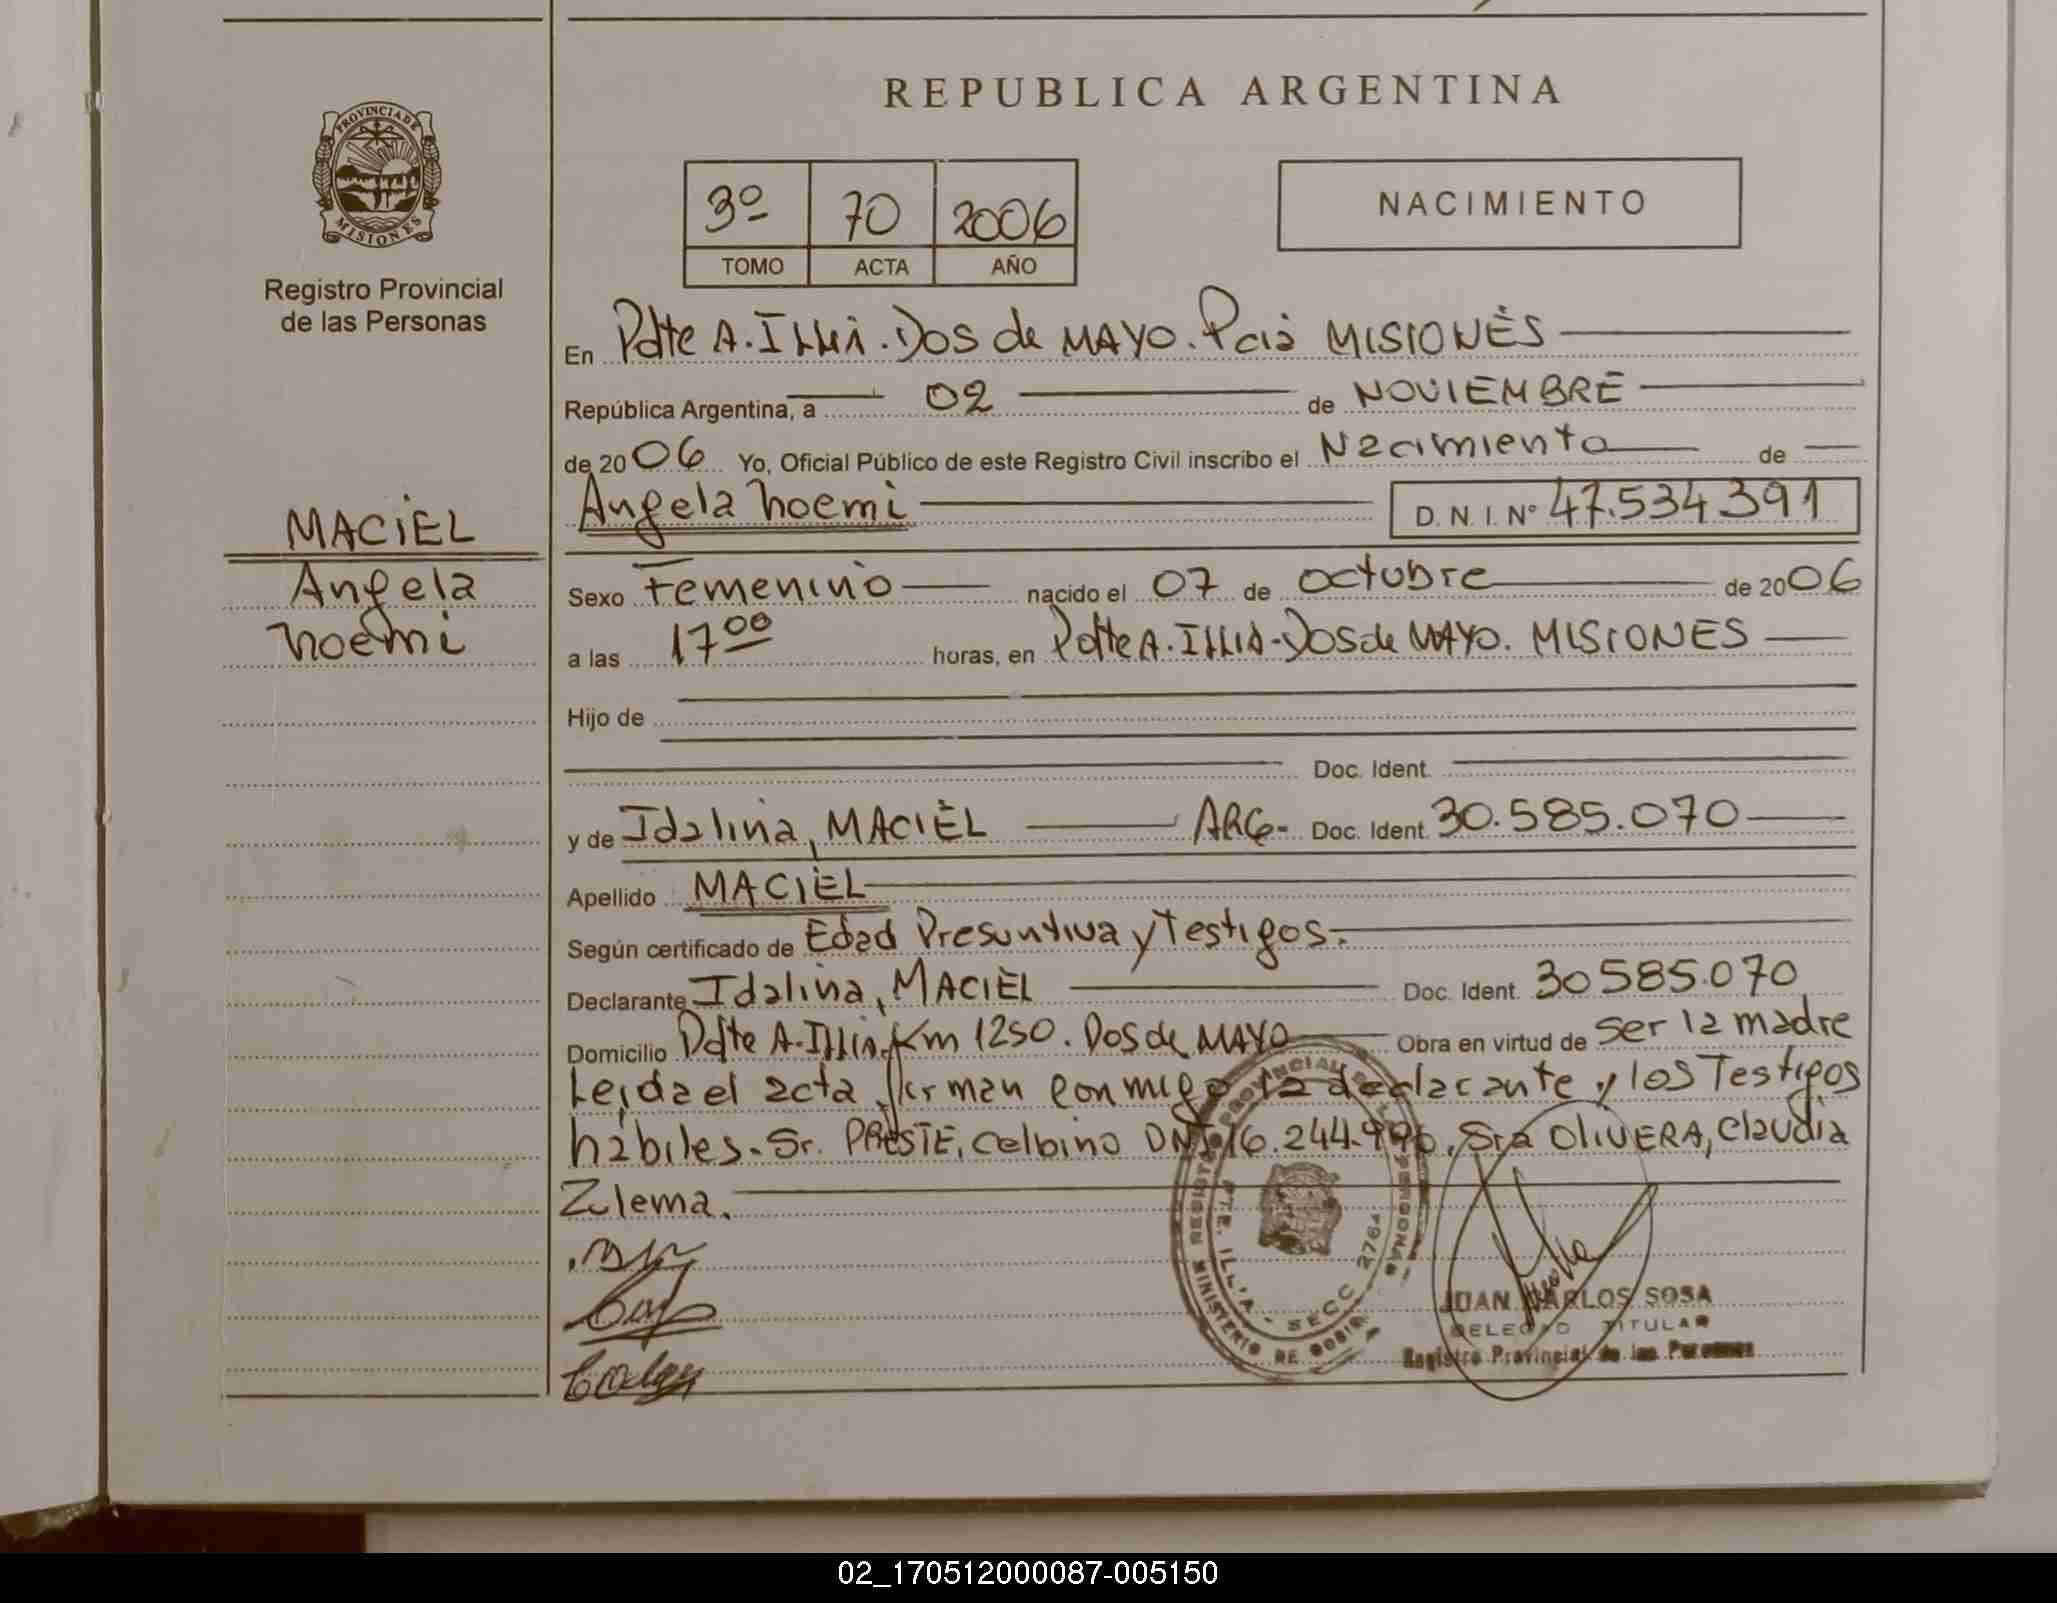 REPUBLICA ARGENTINA
PROVINCIA DE MISIONES
Registro Provincial
de las Personas
3º 70 2006
TOMO ACTA AÑO
NACIMIENTO
En Pdte A. Illia. Dos de MAYO. Pcia MISIONES
República Argentina, a 02 de NOVIEMBRE
de 2006 Yo, Oficial Público de este Registro Civil inscribo el Nacimiento de
Angela Noemi D. N. I. Nº 47.534.391
MACIEL
Angela
Noemi
Sexo Femenino nacido el 07 de octubre de 2006
a las 17⁰⁰ horas, en Pdte A. Illia - Dos de MAYO. MISIONES
Hijo de
Doc. Ident.
y de Idalina, MACIEL ARG- Doc. Ident. 30.585.070
Apellido MACIEL
Según certificado de Edad Presuntiva y Testigos.
Declarante Idalina, MACIEL Doc. Ident. 30585.070
Domicilio Pdte A. Illia. Km 1250. Dos de MAYO Obra en virtud de ser la madre
Leida el acta firman conmigo la declarante y los Testigos
hábiles. Sr. PRESTE, Celbino DNI 16.244. Sra OLIVERA, Claudia
Zulema.
REGISTRO PROVINCIAL DE LAS PERSONAS
MINISTERIO DE GOBIERNO
PTE. ILLIA - SECC 2764
JUAN CARLOS SOSA
DELEGADO TITULAR
Registro Provincial de las Personas
02_170512000087-005150